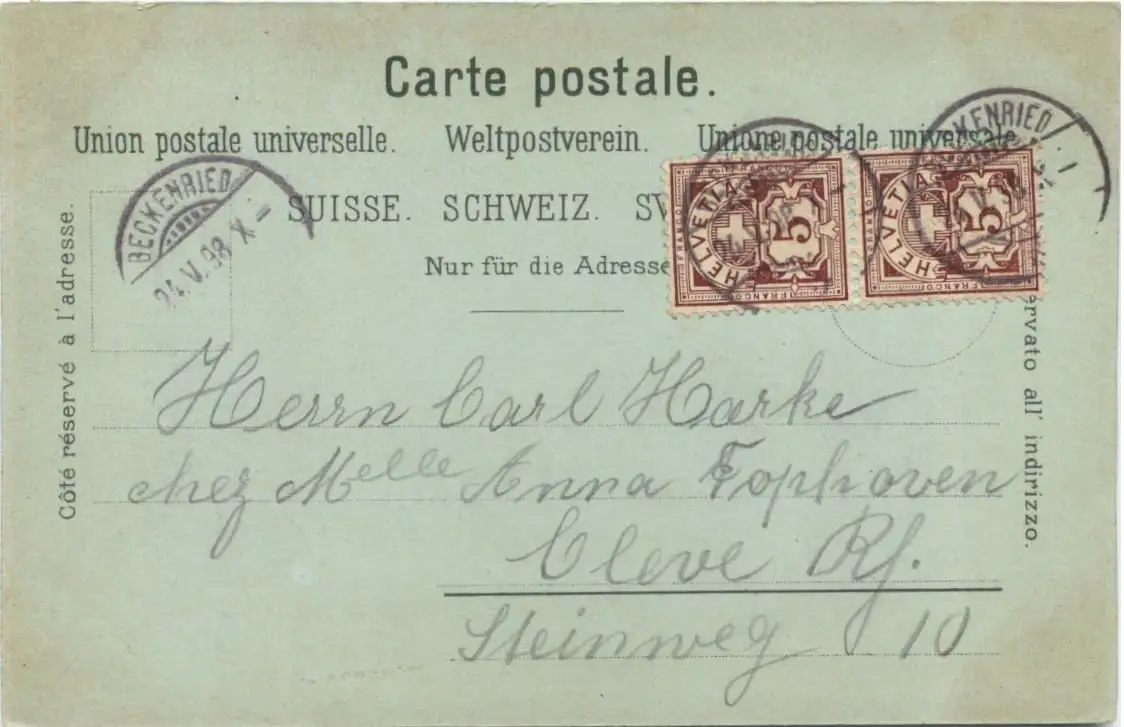 Carte postale.
Union postale universelle. Weltpostverein. Unione postale universale
SUISSE. SCHWEIZ. SV
Nur für die Adresse
Côté réservé à l'adresse.
ervato all' indirizzo.
BECKENRIED
24.V.98 X-
BECKENRIED
HELVETIA
5
FRANCO
HELVETIA
5
FRANCO
Herrn Carl Harke
chez Melle Anna Fophoven
Cleve Rh.
Steinweg 10